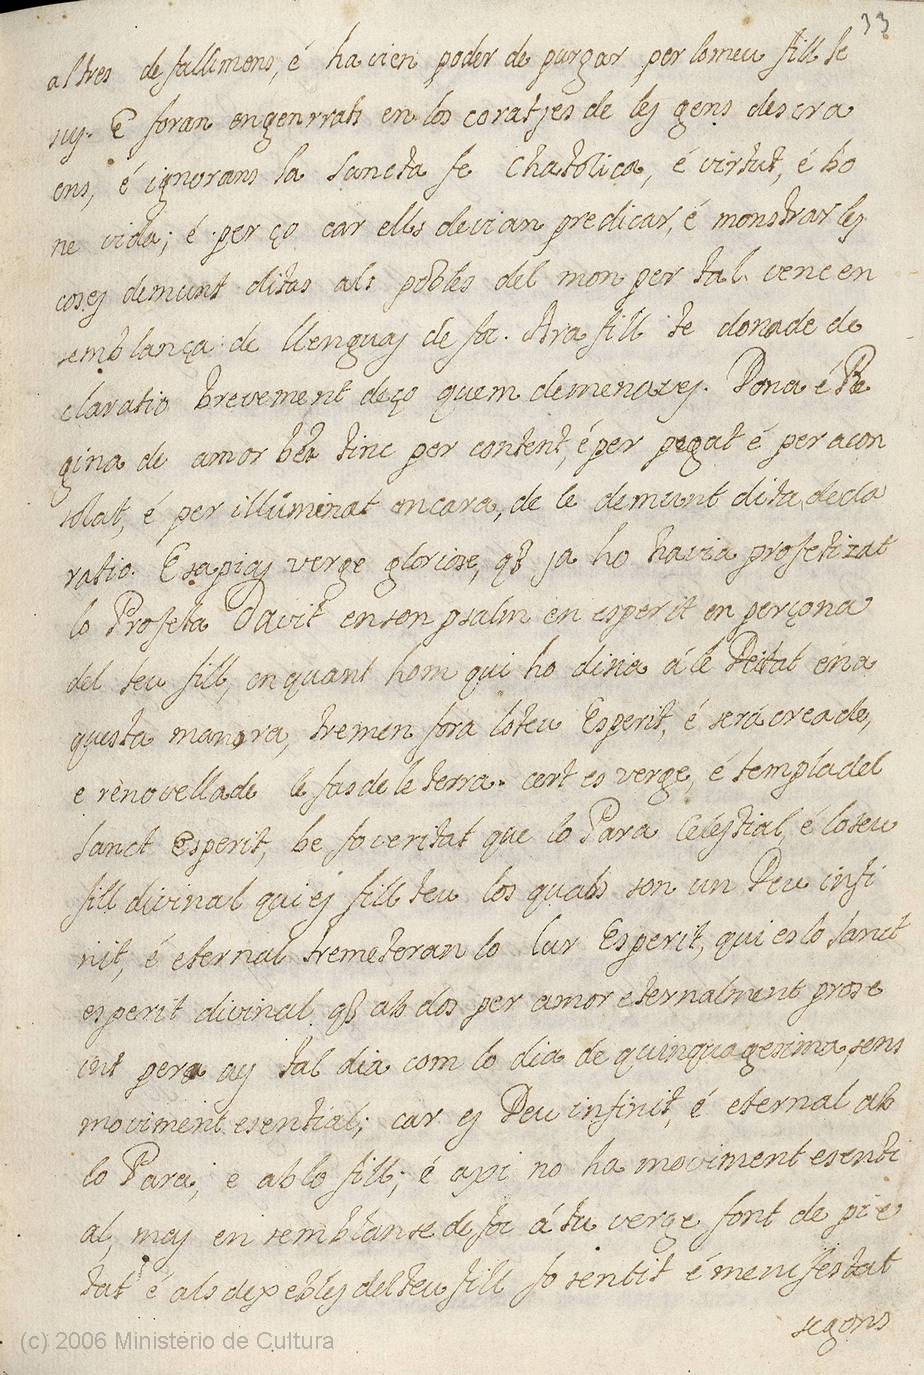 33
altres defallimens, é havien poder de purgar per lo meu fill Je
sus. E foran engenrrats en los coratjes de les gens descra
ens, é ignorans la Sancta fe Chatolica, é virtut, é bo
ne vida; é per ço car ells devian predicar, é monstrar les
coses demunt ditas als pobles del mon per tal vencen
semblança de llenguas de foc. Ara fill te donade de
claratio brevement deço quem demenaves. Dona é Re
gina de amor be tinc per content, é per pagat é per acon
solat, é per illúminat encara, de le demunt dita decla
ratio. E sapias verge gloriose, q ja ho havia profetizat
lo Profeta Davit en son psalm en esperit en perçona
del teu fill, en quant hom qui ho diria á le Deitat en a
questa manera, tremen fora lo teu Esperit, é será creade,
e rènovellade le fas de le terra. cert es verge, é templa del
Sanct Esperit, be fo veritat que lo Para Celestial, é lo seu
fill divinal qui es fill teu los quals son un Deu infi
nit, é eternal tremeteran lo lur Esperit, qui es lo Sanct
esperit divinal q ab dos per amor eternalment prose
int pera ay tal dia com lo dia de quinquagesima, sens
moviment esential; car es Deu infinit, é eternal ab
lo Para, e ab lo fill; é axi no ha moviment esenti
al, mas en semblanse de foc á tu verge font de pie
tat é als dexebles del teu fill fo sentit é menifestat
segons
(c) 2006 Ministerio de Cultura